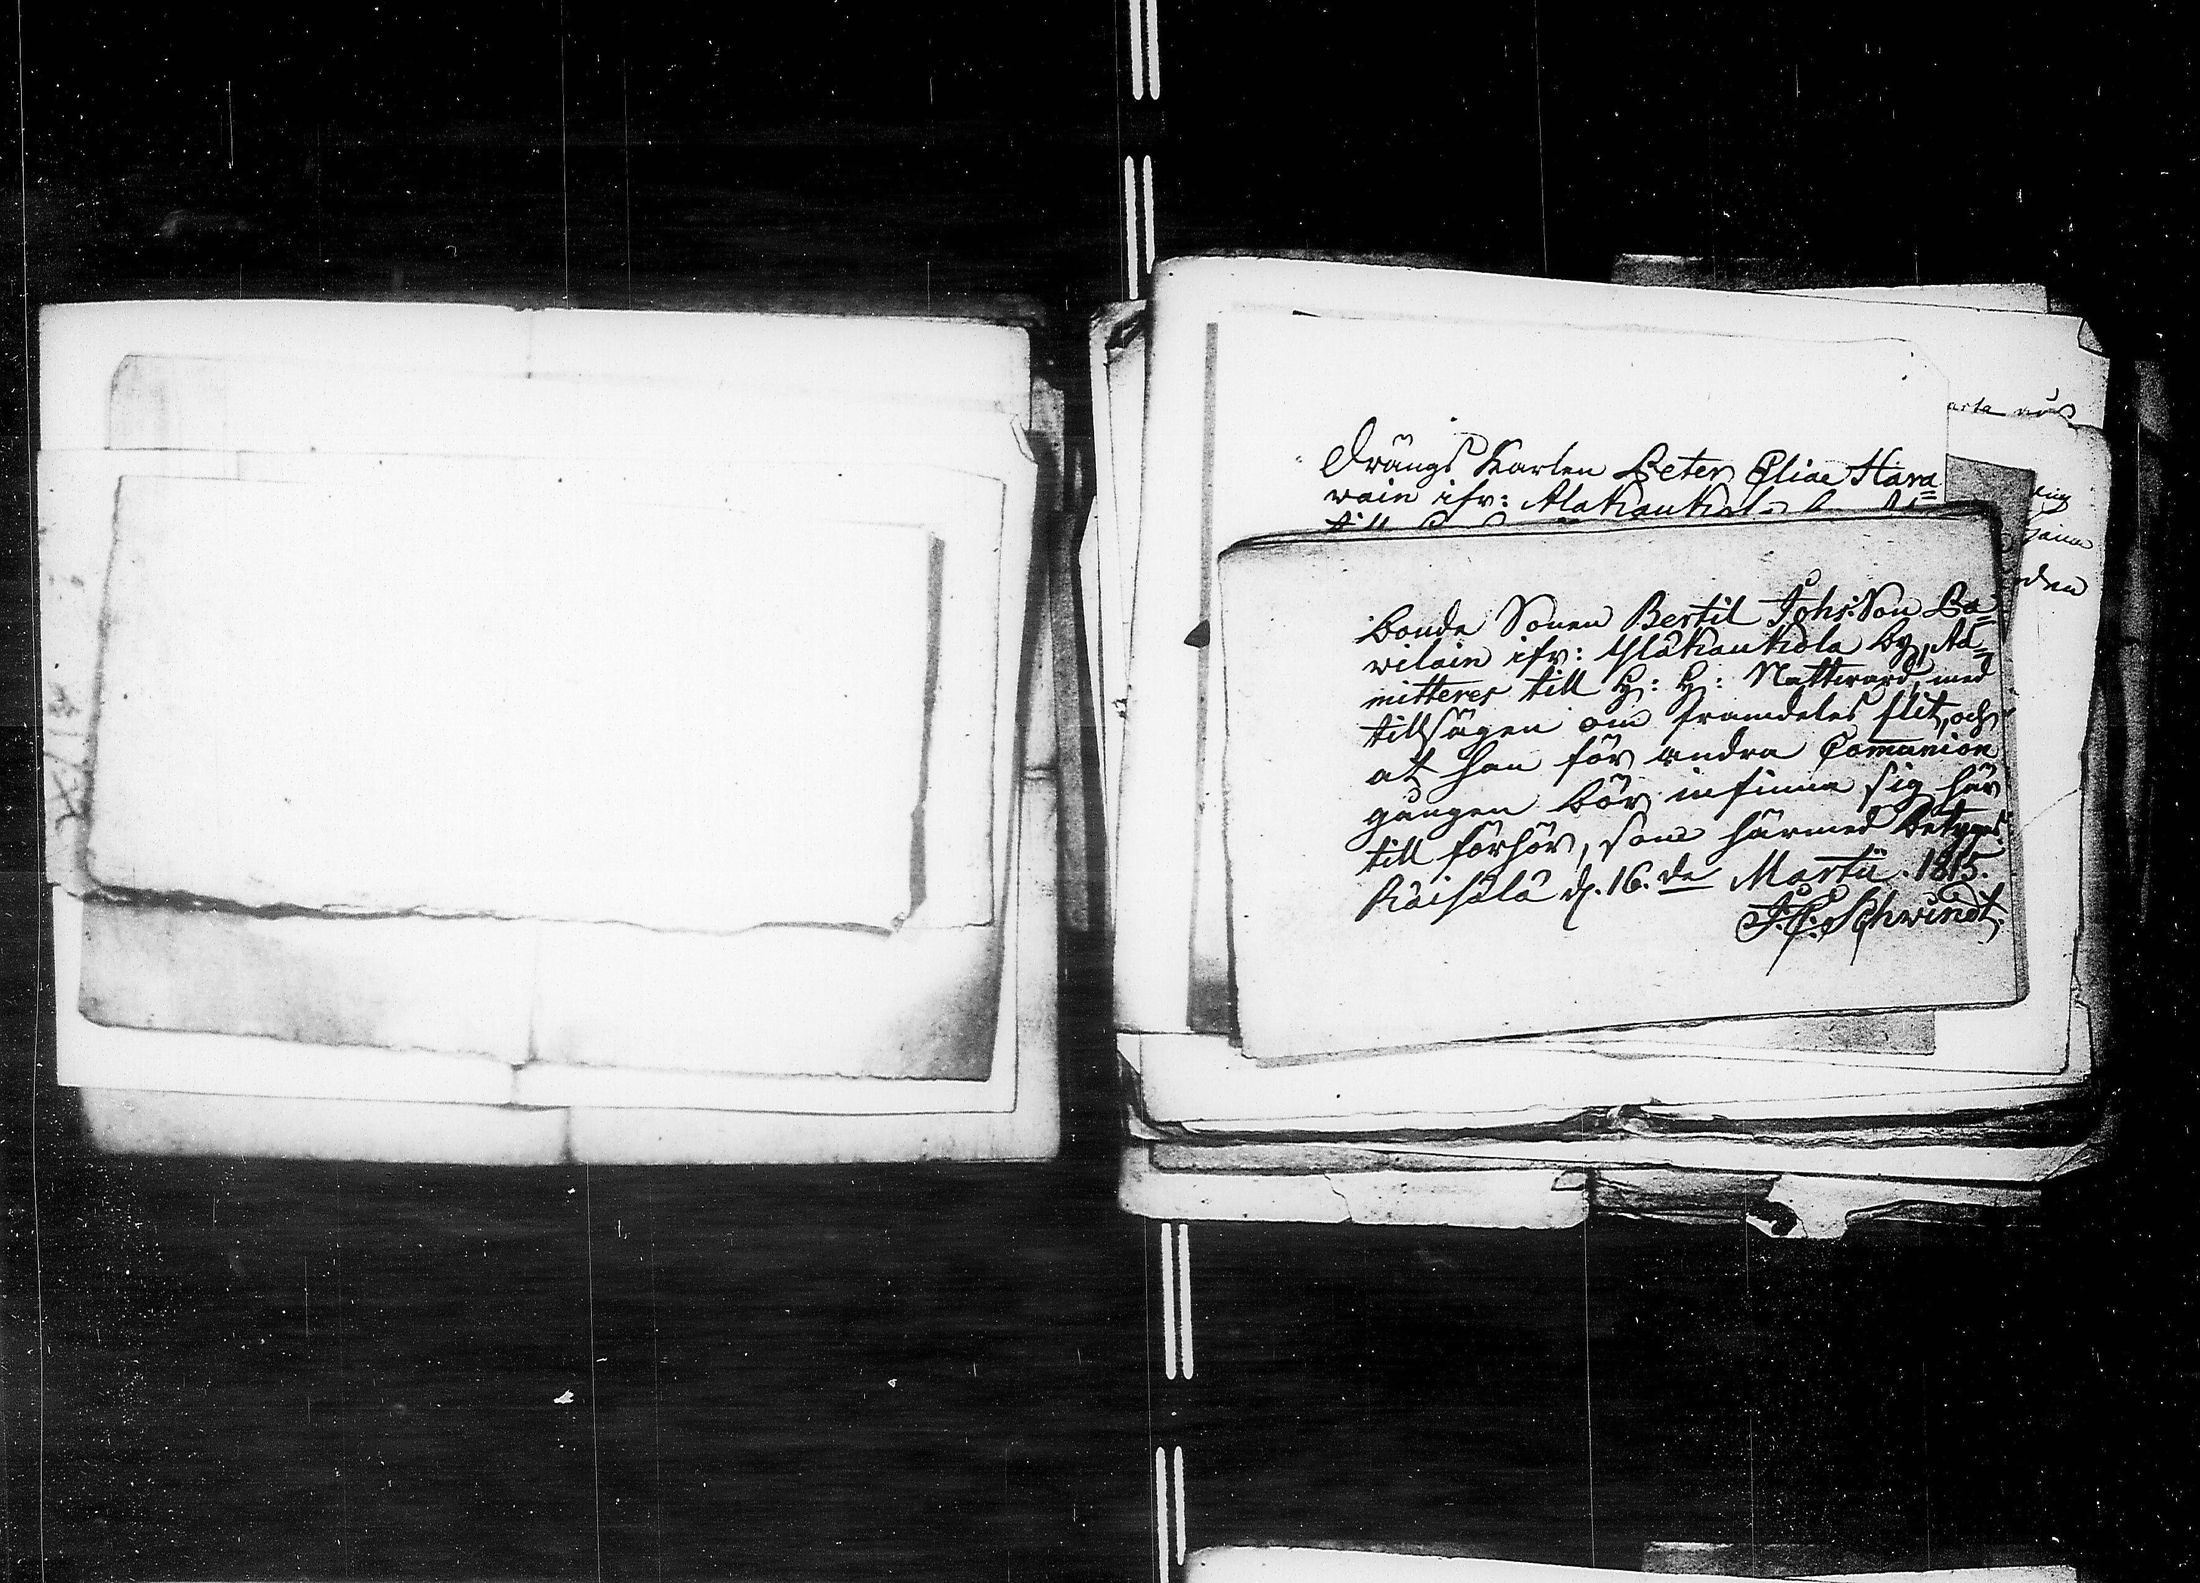 Drängs Karlen Peter Eliae Hara=
wain ifr: Alakaukola
Bonde Sonen Bertil Johs:Son Pa=
wilain ifr: Yläkaukola by, Ad=
mitteres till H: H: Nattward, med
tillsägen om framdeles flit, och
at han för andra Communion
gången bör infinna sig här
till förhör, som härmed betyges.
Räisälä d. 16.de Martii. 1815.
J. C. Schwindt.